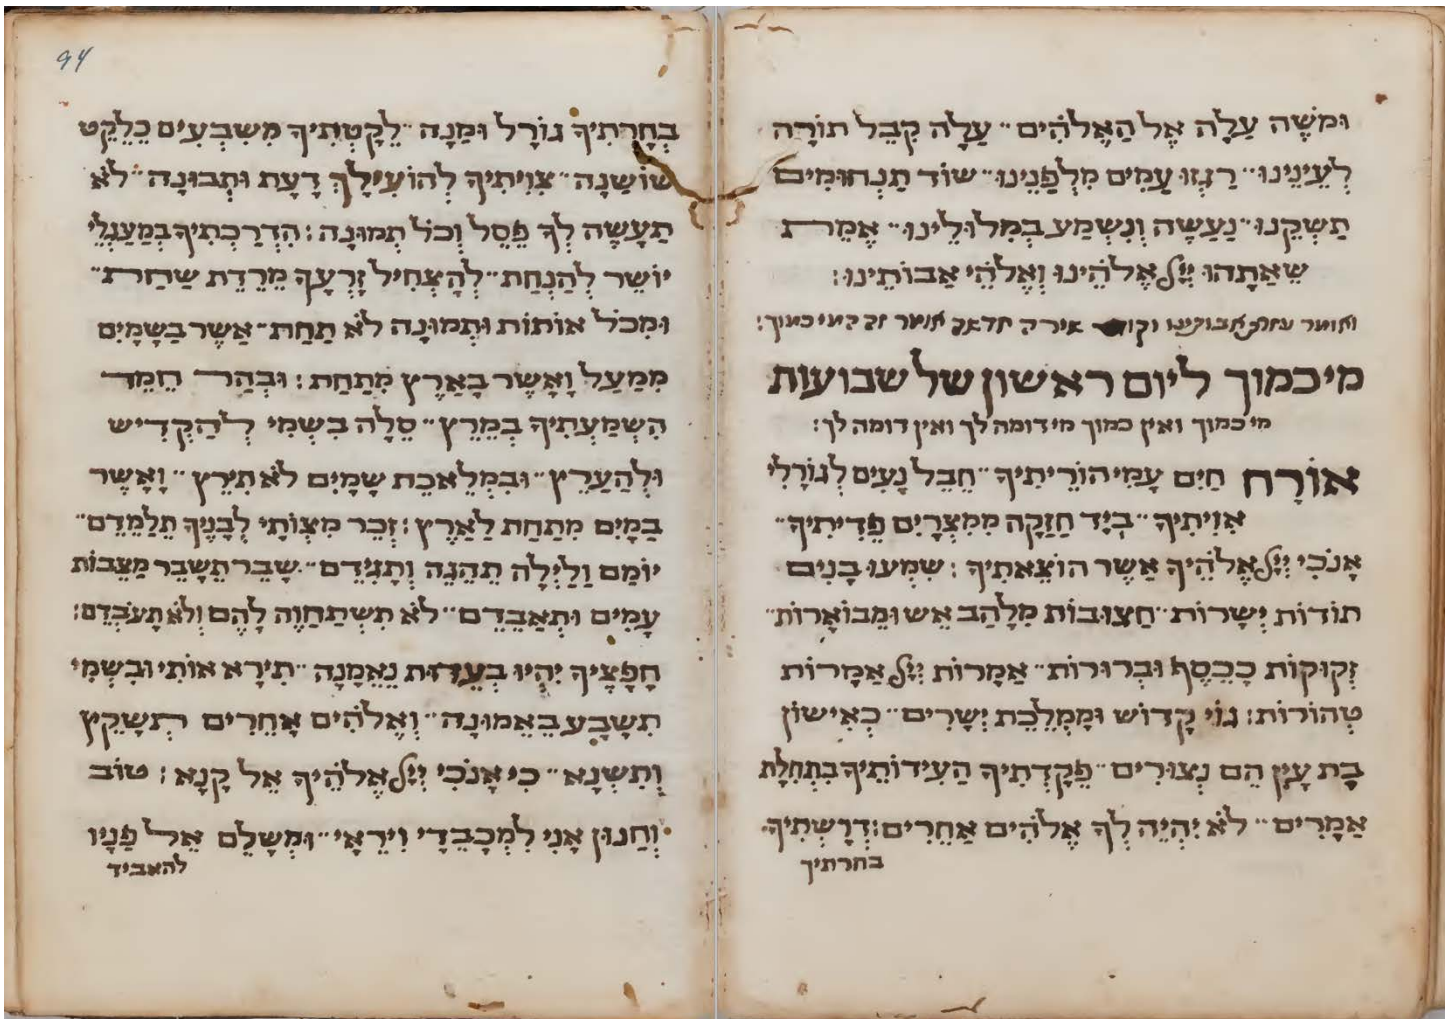 וּמֹשֶׁה עָלָה אֶל הָאֱלֹהִים·· עָלָה קִבֵּל תּוֹרָה
לְעֵינֵינוּ·· רָגְזוּ עַמִּים מִלְּפָנֵינוּ·· שׁוֹד תַּנְחוּמִים
תַּשְׁקֵנוּ·· נַעֲשֶׂה וְנִשְׁמַע בְּמִלּוּלֵינוּ·· אֱמֶת
שֶׁאַתָּה הוּא יְיָ אֱלֹהֵינוּ וֵאלֹהֵי אֲבוֹתֵינוּ:
ואומר עזרת אבותינו אומר מי כמוך:
מי כמוך ליום ראשון של שבועות
מי כמוך ואין כמוך מי דומה לך ואין דומה לך:
אוֹרַח חַיִּים עַמִּי הוֹרֵיתִיךָ·· חֵבֶל נָעִים לְגוֹרָלִי
אִוִּיתִיךָ·· בְּיָד חֲזָקָה מִמִּצְרַיִם פְּדִיתִיךָ··
אָנֹכִי יְיָ אֱלֹהֶיךָ אֲשֶׁר הוֹצֵאתִיךָ: שִׁמְעוּ בָנִים
תּוֹרוֹת יְשָׁרוֹת·· חֲצוּבוֹת מִלַּהַב אֵשׁ וּמְבוֹאָרוֹת··
זְקוּקוֹת כַּכֶּסֶף וּבְרוּרוֹת·· אִמְרוֹת יְיָ אֲמָרוֹת
טְהוֹרוֹת: גּוֹי קָדוֹשׁ וּמַמְלֶכֶת יְשָׁרִים·· כְּאִישׁוֹן
בַּת עַיִן הֵם נְצוּרִים·· פְּקַדְתִּיךָ הַעִידוֹתִיךָ בִּתְחִלַּת
אֲמָרִים·· לֹא יִהְיֶה לְךָ אֱלֹהִים אֲחֵרִים: דְּרַשְׁתִּיךָ
בחרתיך
בְּחַרְתִּיךָ גּוֹרָל וּמָנָה·· לְקַטְתִּיךָ מִשִּׁבְעִים כְּלַקֵּט
שׁוֹשַׁנָּה·· צִוִּיתִיךָ לְהוֹעִילָךְ דַּעַת וּתְבוּנָה·· לֹא
תַעֲשֶׂה לְךָ פֶסֶל וְכֹל תְּמוּנָה: הִדְרַכְתִּיךָ בְּמַעְגְּלֵי
יוֹשֶׁר לְהַנְחַת·· לְהַצְחִיל זַרְעֲךָ מֵרֶדֶת שַׁחַת··
וּמִכֹּל אוֹתוֹת וּתְמוּנָה לֹא תֵחַת·· אֲשֶׁר בַּשָּׁמַיִם
מִמַּעַל וַאֲשֶׁר בָּאָרֶץ מִתַּחַת: וּבְהַר חֶמֶד
הִשְׁמַעְתִּיךָ בְּמֶרֶץ·· סֶלָה בִּשְׁמִי לְהַקְדִּישׁ
וּלְהַעֲרִיץ·· וּבִמְלֶאכֶת שָׁמַיִם לֹא תֵירֵץ·· וַאֲשֶׁר
בַּמַּיִם מִתַּחַת לָאָרֶץ: זְכֹר מִצְוֹתַי לְבָנֶיךָ תְּלַמְּדֵם··
יוֹמָם וָלַיְלָה תֶּהְגֶּה וְתַגִּידֵם·· שַׁבֵּר תְּשַׁבֵּר מַצֵּבוֹת
עַמִּים וּתְאַבְּדֵם·· לֹא תִשְׁתַּחֲוֶה לָהֶם וְלֹא תָעָבְדֵם:
חֲפָצֶיךָ יִהְיוּ בְּעֵדוּת נֶאֱמָנָה·· תִּירָא אוֹתִי וּבִשְׁמִי
תִשָּׁבַע בֶּאֱמוּנָה·· וֵאלֹהִים אֲחֵרִים תְּשַׁקֵּץ
וְתִשְׂנָא·· כִּי אָנֹכִי יְיָ אֱלֹהֶיךָ אֵל קַנָּא: טוֹב
וְחַנּוּן אֲנִי לִמְכַבְּדַי וִירֵאָי·· וּמְשַׁלֵּם אֶל פָּנָיו
להאביד